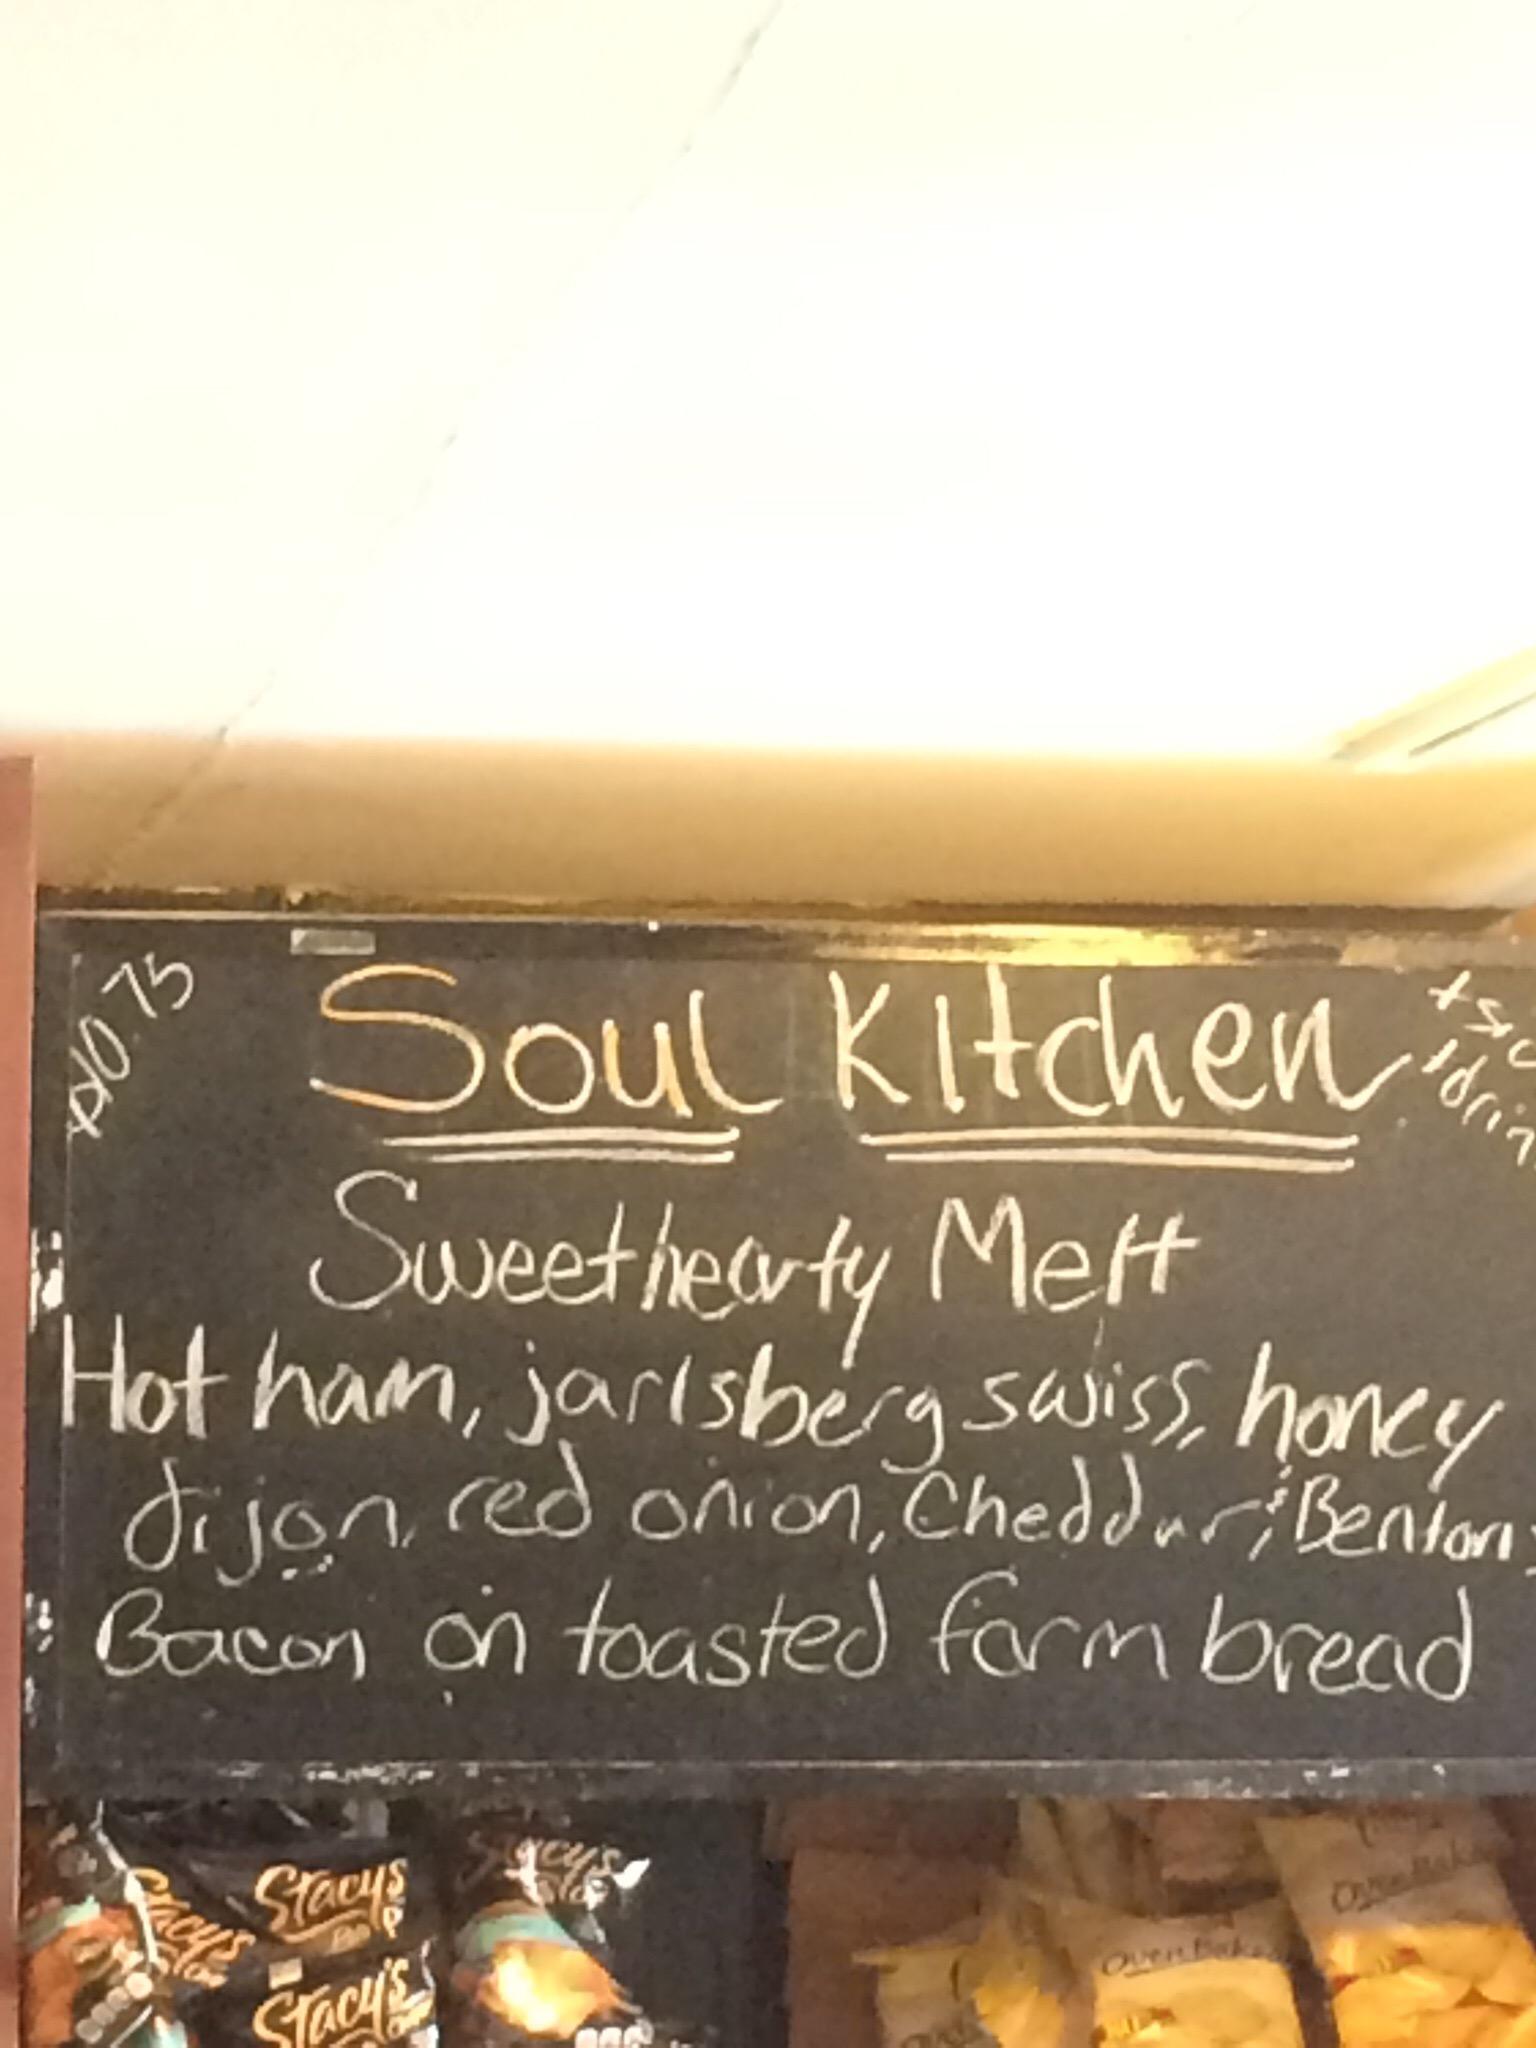 $10.75
Soul Kitchen
Sweethearty Melt
Hot ham, jarlsberg swiss, honey
dijon, red onion, Cheddar, & Benton's
Bacon on toasted farm bread
Stacy's
Stacy's
Stacy's
Stacy's
Oven Baked
Oven Baked